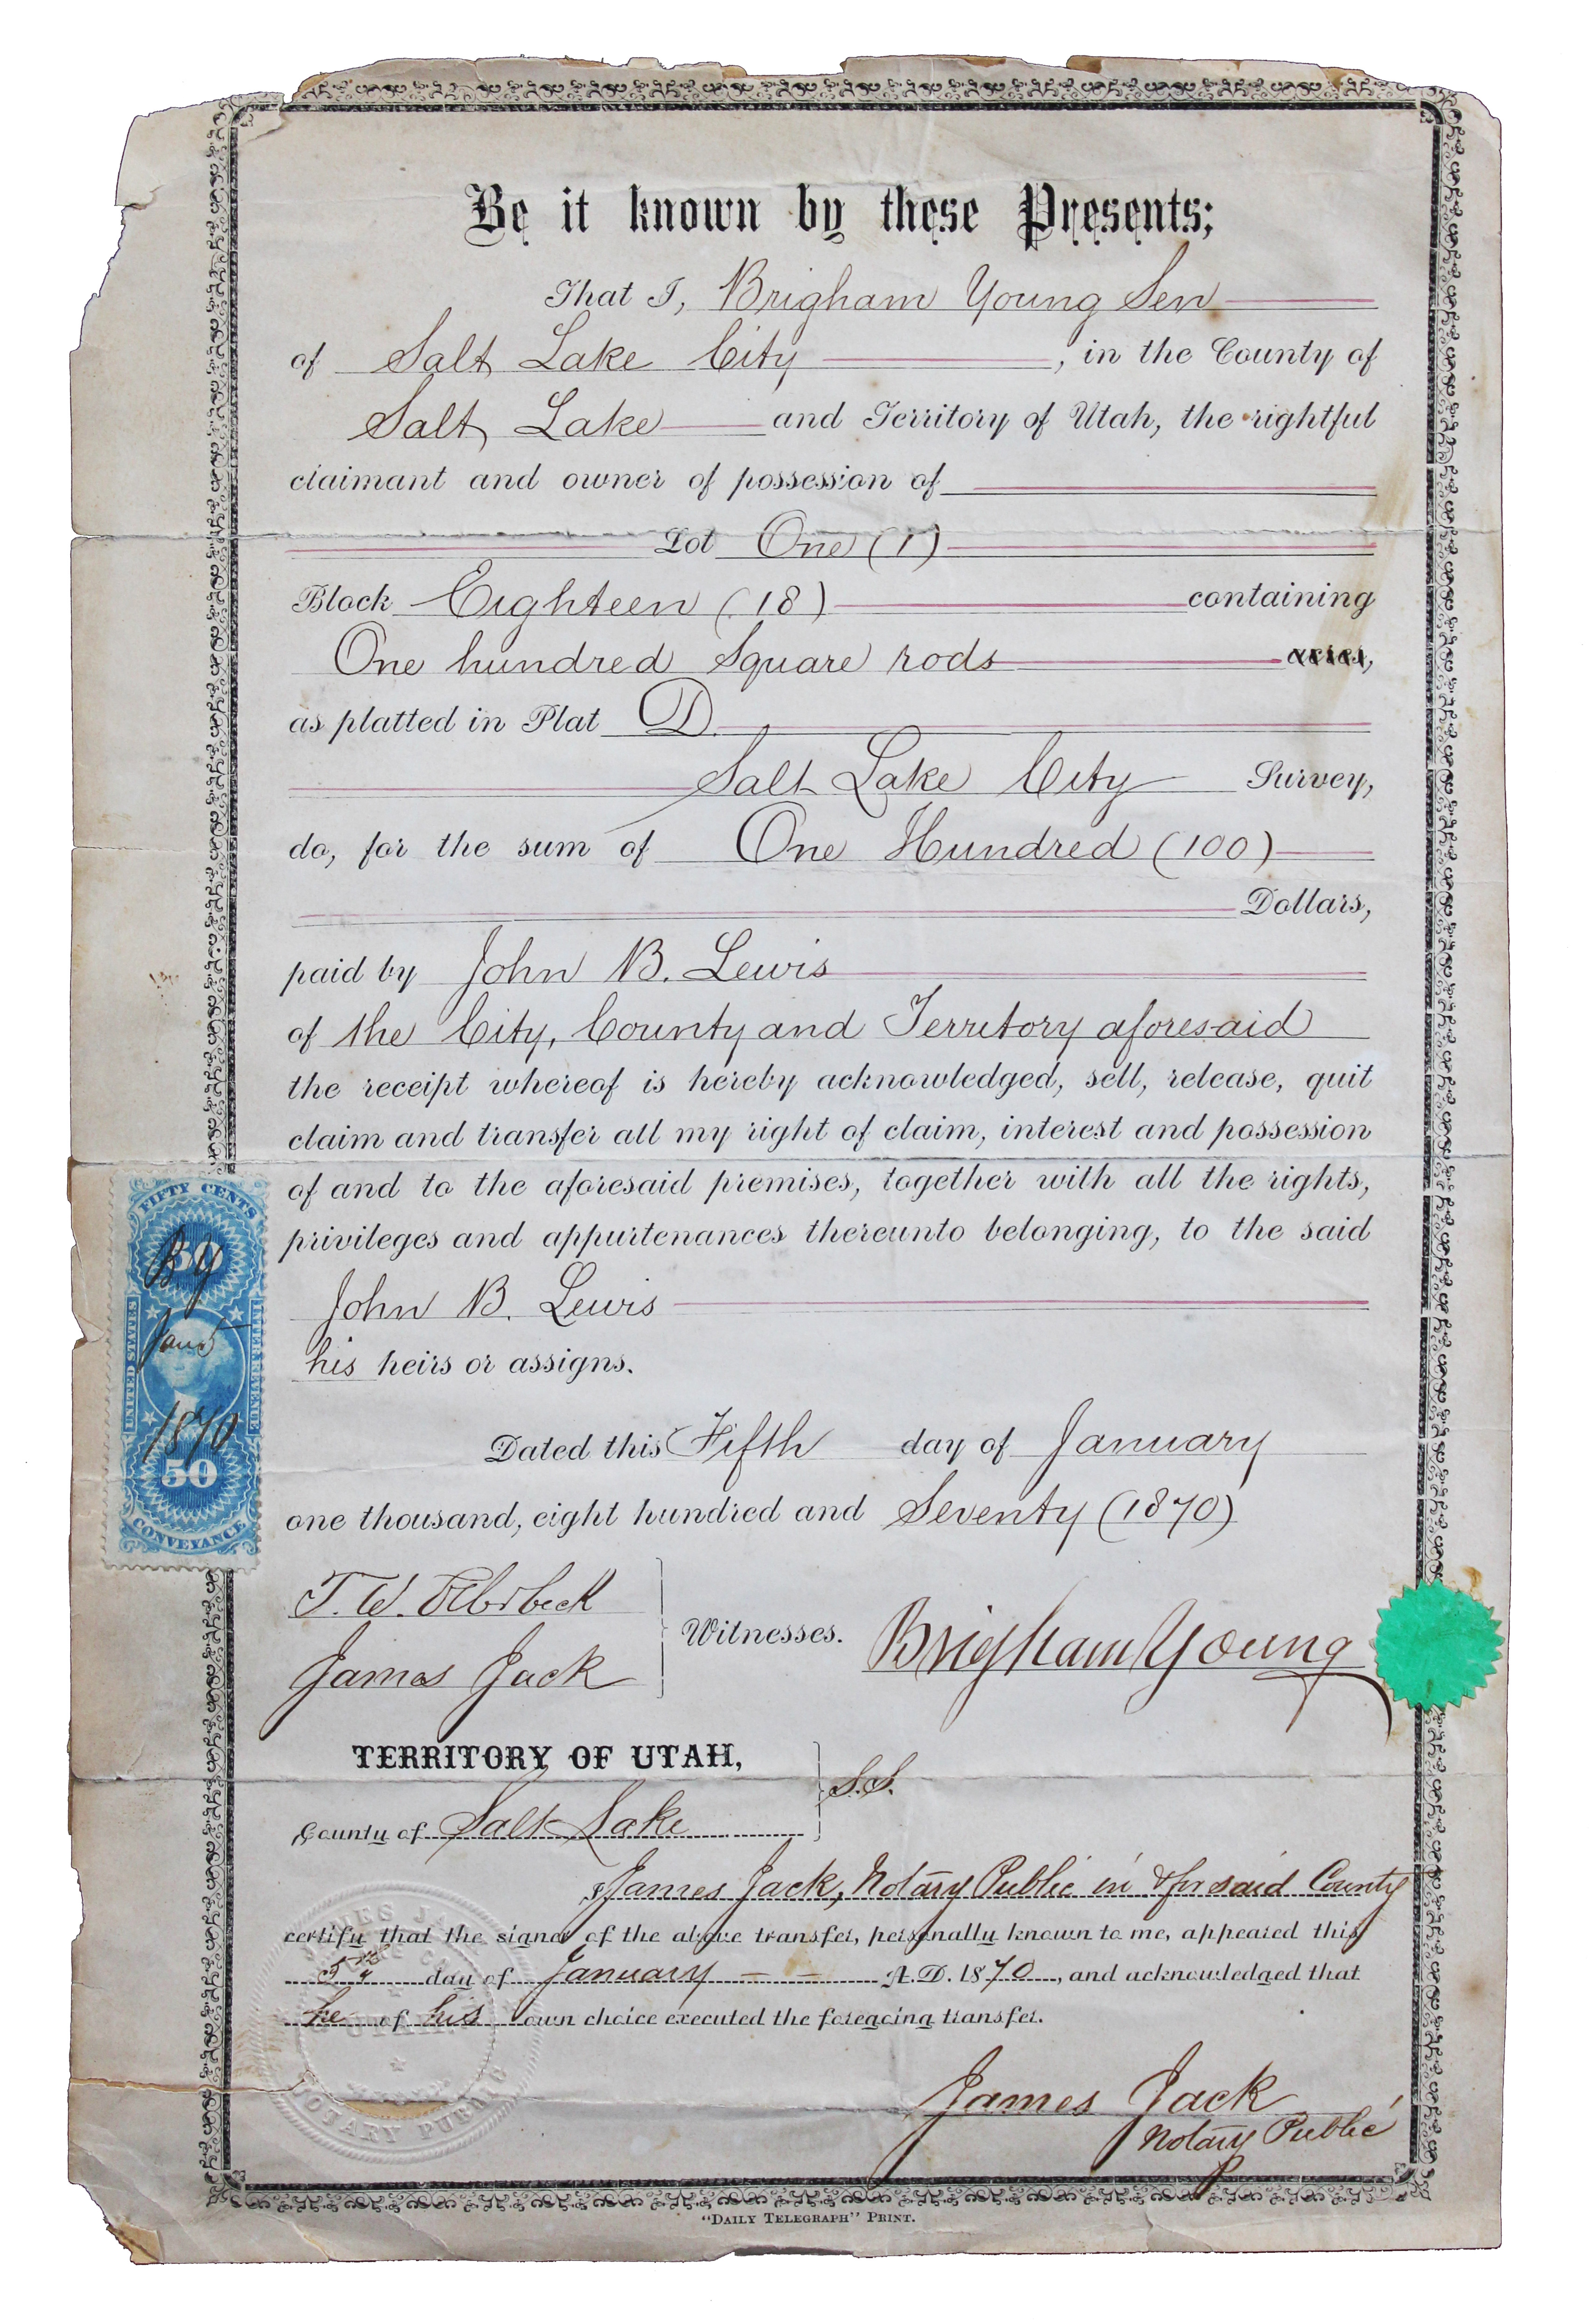 Be it known by these Presents;
That I, Brigham Young Sen
of Salt Lake City, in the County of
Salt Lake and Territory of Utah, the rightful
claimant and owner of possession of
Lot One (1)
Block Eighteen (18) containing
One hundred Square rods acres,
as platted in Plat D
Salt Lake City Survey,
do, for the sum of One Hundred (100)
Dollars,
paid by John B. Lewis
of the City, County and Territory aforesaid
the receipt whereof is hereby acknowledged, sell, release, quit
claim and transfer all my right of claim, interest and possession
of and to the aforesaid premises, together with all the rights,
privileges and appurtenances thereunto belonging, to the said
John B. Lewis
his heirs or assigns.
FIFTY CENTS
50
B Y
UNITED STATES
INTER. REVENUE
Jan 5
1870
50
CONVEYANCE
Dated this Fifth day of January
one thousand, eight hundred and Seventy (1870)
T. W. Ellerbeck
James Jack
Witnesses.
Brigham Young
TERRITORY OF UTAH,
S.S.
County of Salt Lake
I James Jack, Notary Public in & for said County
certify that the signer of the above transfer, personally known to me, appeared this
5th day of January A.D. 1870, and acknowledged that
he of his own choice executed the foregoing transfer.
NOTARY PUBLIC
James Jack
Notary Public
"DAILY TELEGRAPH" PRINT.